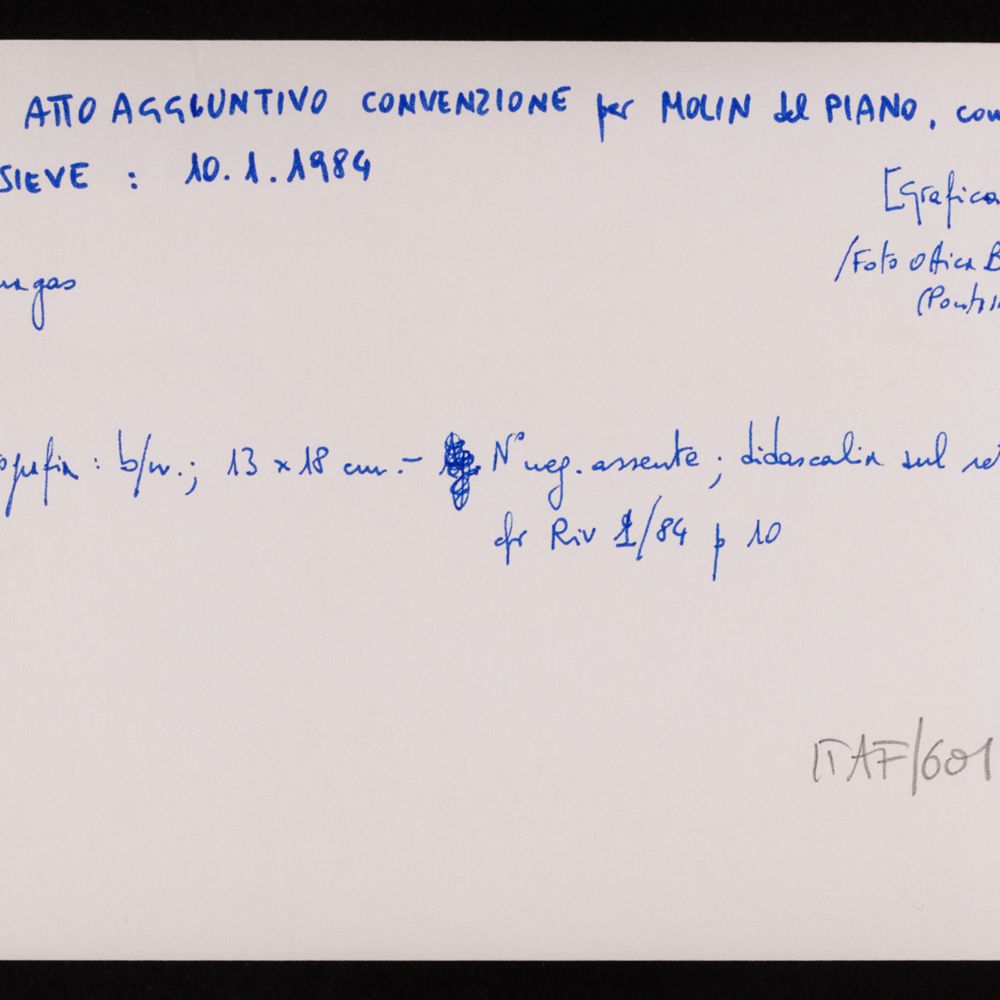 ATTO AGGIUNTIVO CONVENZIONE per MOLIN del PIANO, com
SIEVE : 10.1.1984
[Grafica
/Foto ottica B
gas
(Pont
b/n.; 13 x 18 cm.- N° neg. assente; didascalia sul ret
cfr Riv 1/84 p 10
ITAF/601